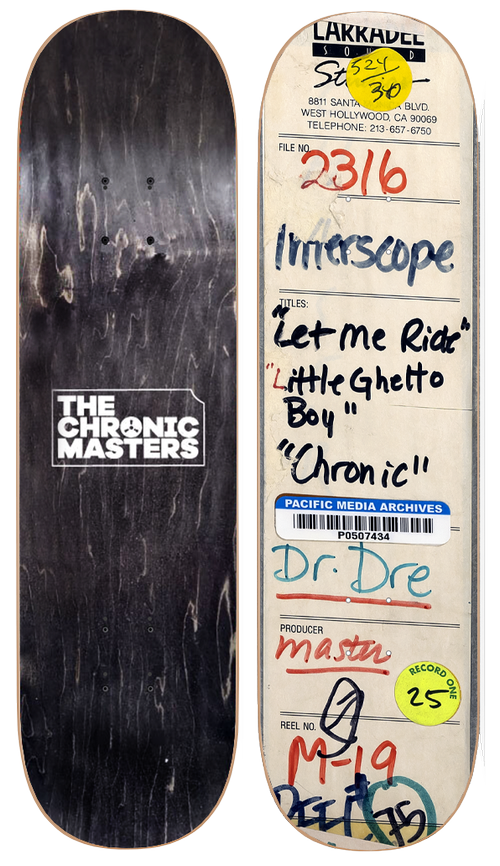 THE
CHRONIC
MASTERS
LARRABEE
SOUND
524
30
8811 SANTA BLVD.
WEST HOLLYWOOD, CA 90069
TELEPHONE: 213-657-6750
FILE NO.
2316
Interscope
TITLES:
"Let me Ride"
"Little Ghetto
Boy"
"Chronic"
PACIFIC MEDIA ARCHIVES
P0507434
Dr. Dre
PRODUCER
master
RECORD ONE
25
REEL NO.
M-19
REEL# 75